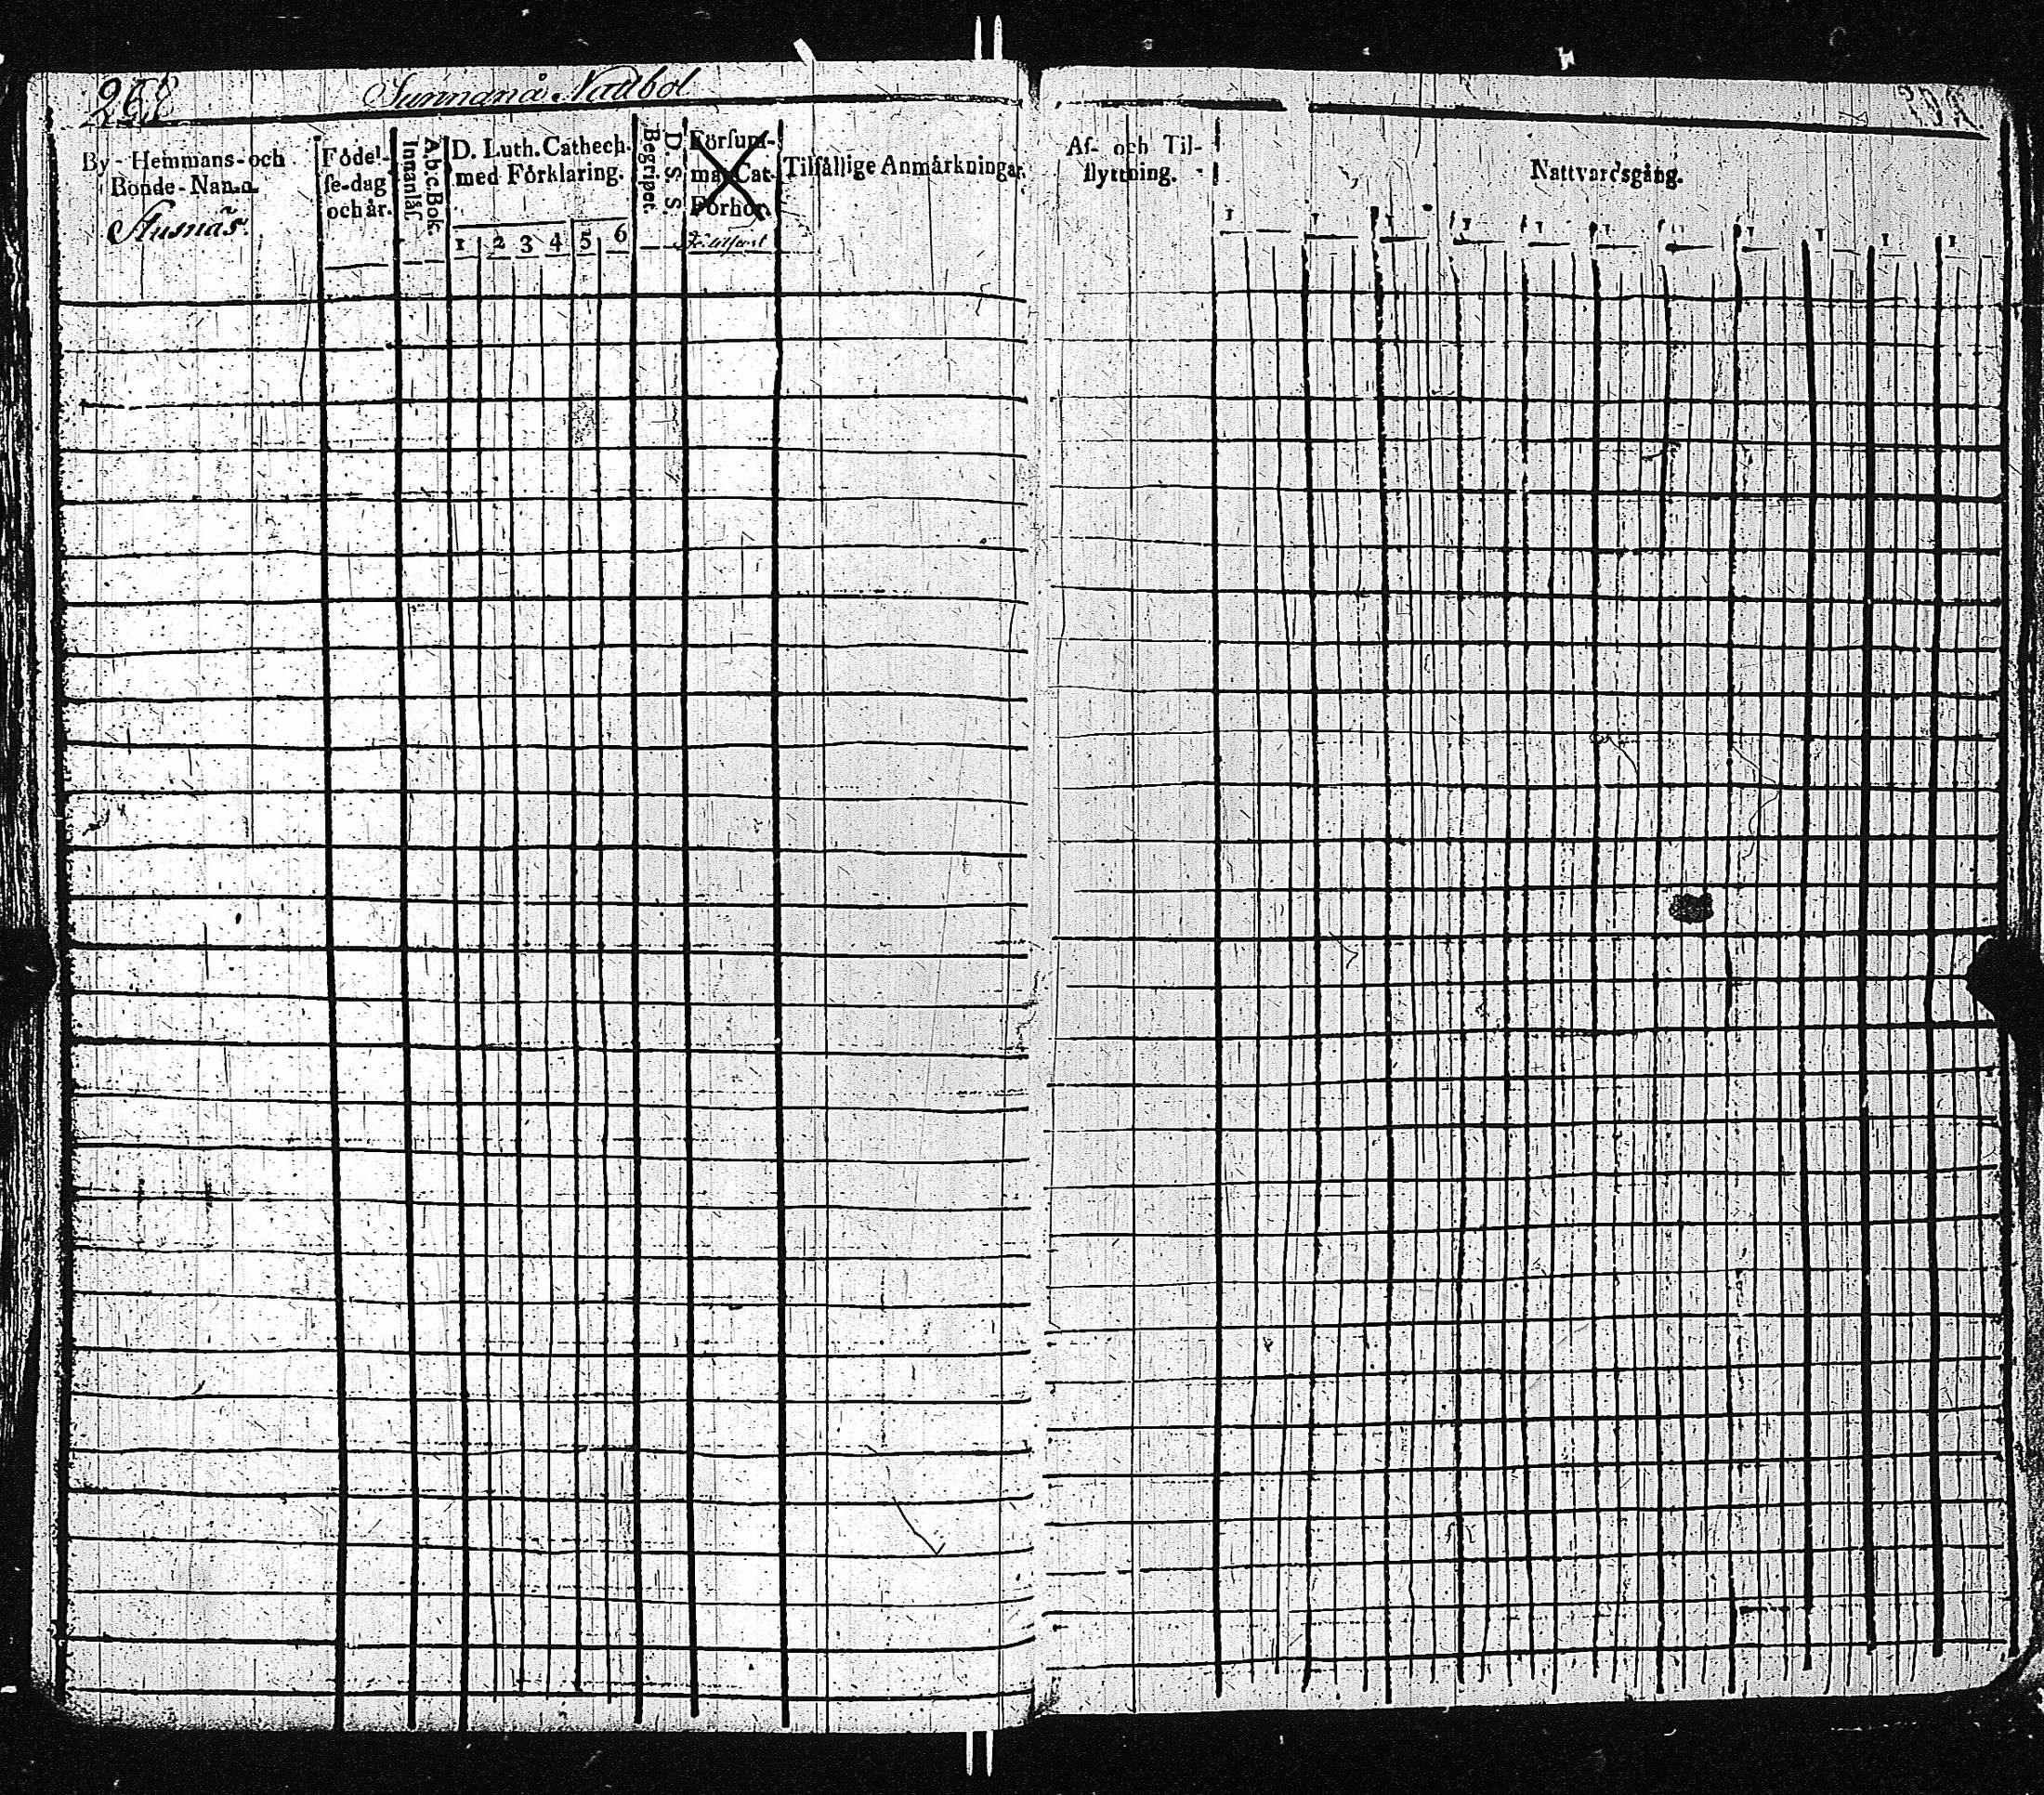 268
Sunnanå Nadbol
By-Hemmans-och
Bonde-Namn.
Stusnäs.
Födel-
se-dag
och år.
A.b.c. Bok.
Innanläs.
D. Luth. Cathech.
med Förklaring.
1 2 3 4 5 6
D. S. S.
Begriper.
Försum-
ma Cat.
Förhör.
Tilfällige Anmärkningar.
Af- och Til-
flyttning.
Nattvardsgång.
1 1 1 1 1 1 1 1 1 1 1